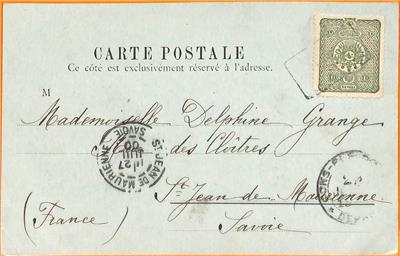 CARTE POSTALE
Ce côté est exclusivement réservé à l'adresse.
M
Mademoiselle Delphine Grange
des Cloîtres
St Jean de Maurienne
(France)
Savoie
ST JEAN DE MAURIENNE
27
JUIL
00
SAVOIE
10 10